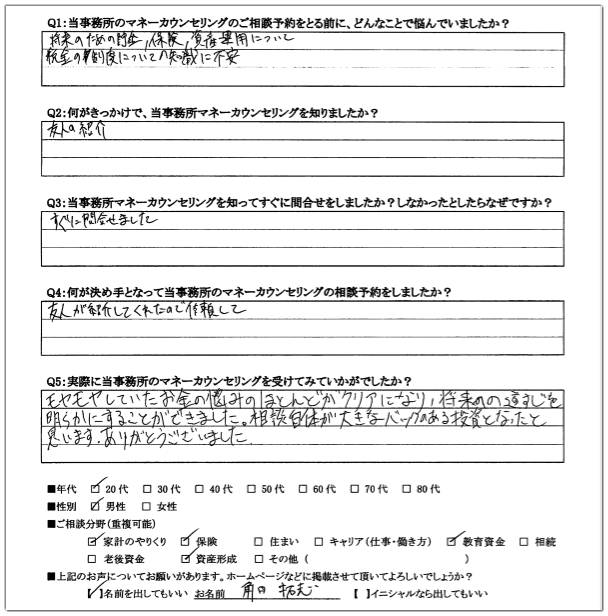 Q1:当事務所のマネーカウンセリングのご相談予約をとる前に、どんなことで悩んでいましたか?
将来のための貯金,保険,資産運用について
税金の制度についての知識に不安
Q2:何がきっかけで、当事務所マネーカウンセリングを知りましたか?
友人の紹介
Q3:当事務所マネーカウンセリングを知ってすぐに問合せをしましたか?しなかったとしたらなぜですか?
すぐに問合せました
Q4:何が決め手となって当事務所のマネーカウンセリングの相談予約をしましたか?
友人が紹介してくれたので信頼して
Q5:実際に当事務所のマネーカウンセリングを受けてみていかがでしたか?
モヤモヤしていたお金の悩みのほとんどがクリアになり,将来への道すじを
明らかにすることができました。相談自体が大きなバックのある投資となったと
思います。ありがとうございました
■年代 ☑ 20代 □ 30代 □ 40代 □ 50代 □ 60代 □ 70代 □ 80代
■性別 ☑ 男性 □ 女性
■ご相談分野(重複可能)
☑ 家計のやりくり ☑ 保険 □ 住まい □ キャリア(仕事・働き方) ☑ 教育資金 □ 相続
□ 老後資金 ☑ 資産形成 □ その他 ( )
■上記のお声についてお願いがあります。ホームページなどに掲載させて頂いてよろしいでしょうか?
【✓】名前を出してもいい お名前 角田 【 】イニシャルなら出してもいい